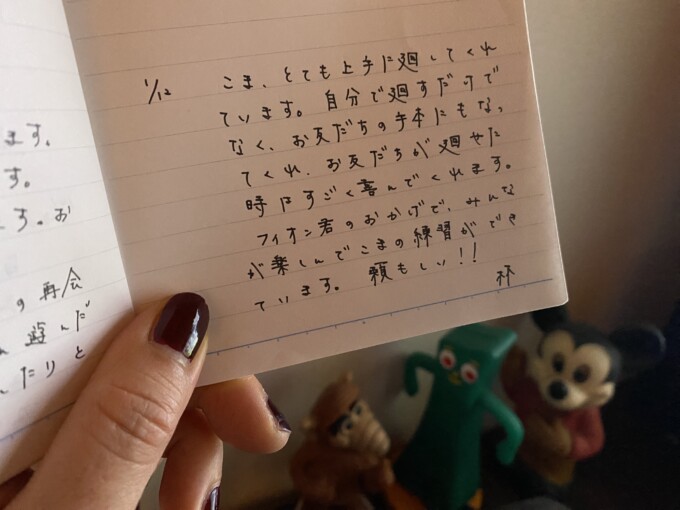 ます。
す。
す。お
の再会
遊んだ
たりと
1/12 こま、とても上手に廻してくれ
ています。自分で廻すだけで
なく、お友だちの手本にもなっ
てくれ、お友だちが廻せた
時はすごく喜んでくれます。
フィオン君のおかげで、みんな
が楽しんでこまの練習ができ
ています。頼もしい!!
林